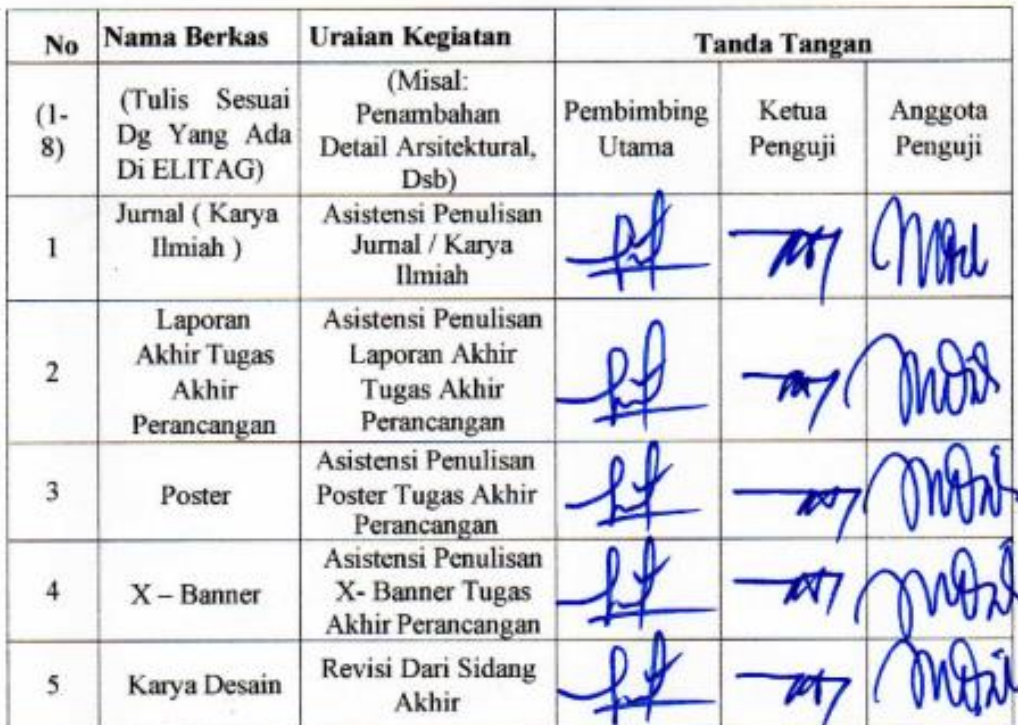 No Nama Berkas Uraian Kegiatan Tanda Tangan
(1-
8)
(Tulis Sesuai
Dg Yang Ada
Di ELITAG)
(Misal:
Penambahan
Detail Arsitektural,
Dsb)
Pembimbing
Utama
Ketua
Penguji
Anggota
Penguji
1
Jurnal ( Karya
Ilmiah )
Asistensi Penulisan
Jurnal / Karya
Ilmiah
2
Laporan
Akhir Tugas
Akhir
Perancangan
Asistensi Penulisan
Laporan Akhir
Tugas Akhir
Perancangan
3
Poster
Asistensi Penulisan
Poster Tugas Akhir
Perancangan
4
X – Banner
Asistensi Penulisan
X- Banner Tugas
Akhir Perancangan
5
Karya Desain
Revisi Dari Sidang
Akhir